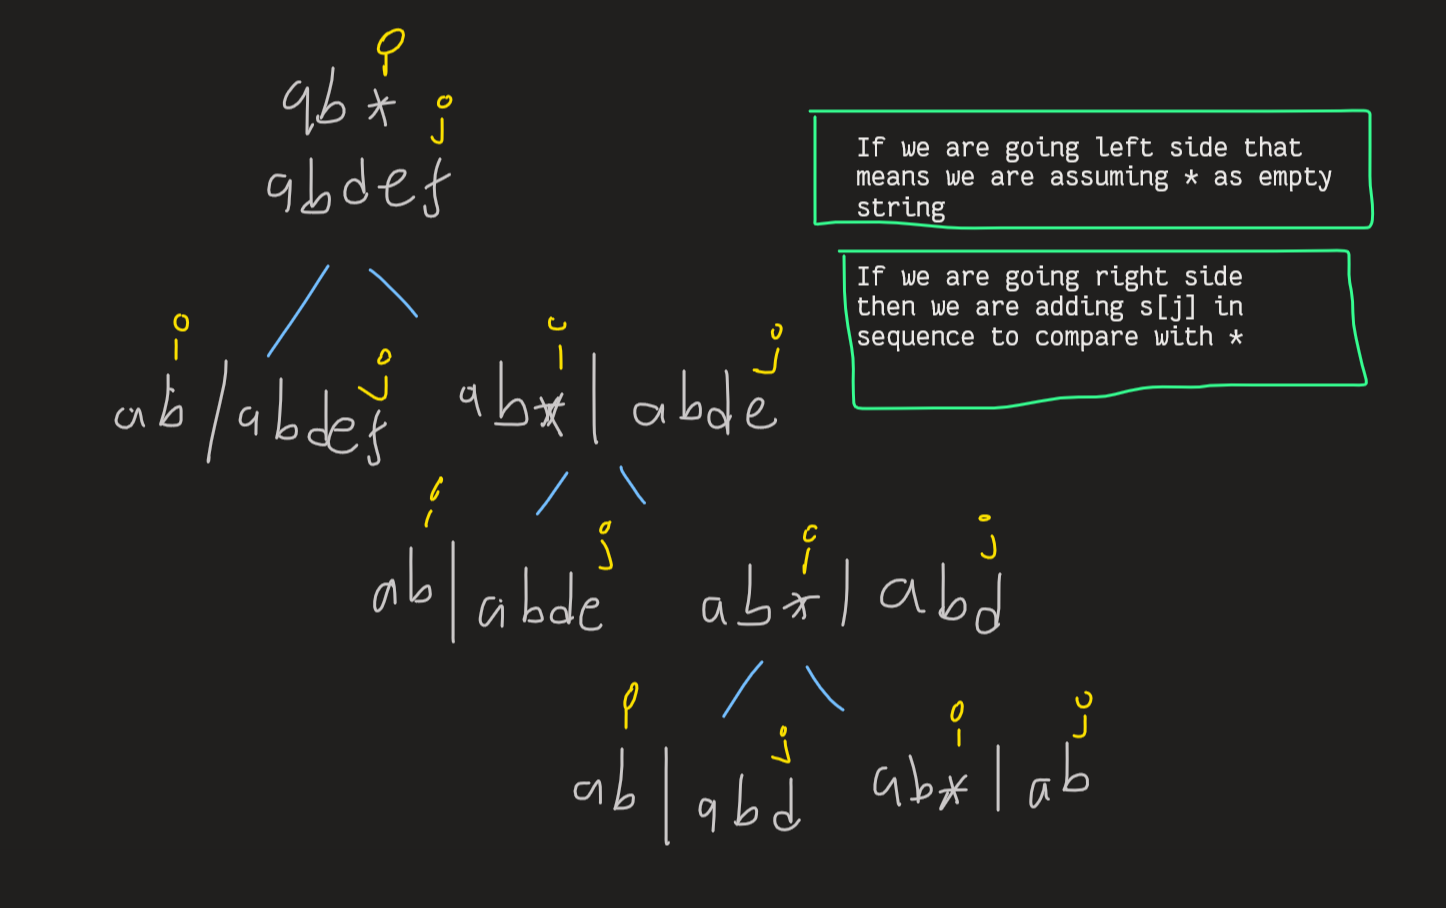 i
ab*
j
abdef
If we are going left side that
means we are assuming * as empty
string
If we are going right side
then we are adding s[j] in
sequence to compare with *
i j i j
ab | abdef ab* | abde
i j i j
ab | abde ab* | abd
i j i j
ab | abd ab* | ab